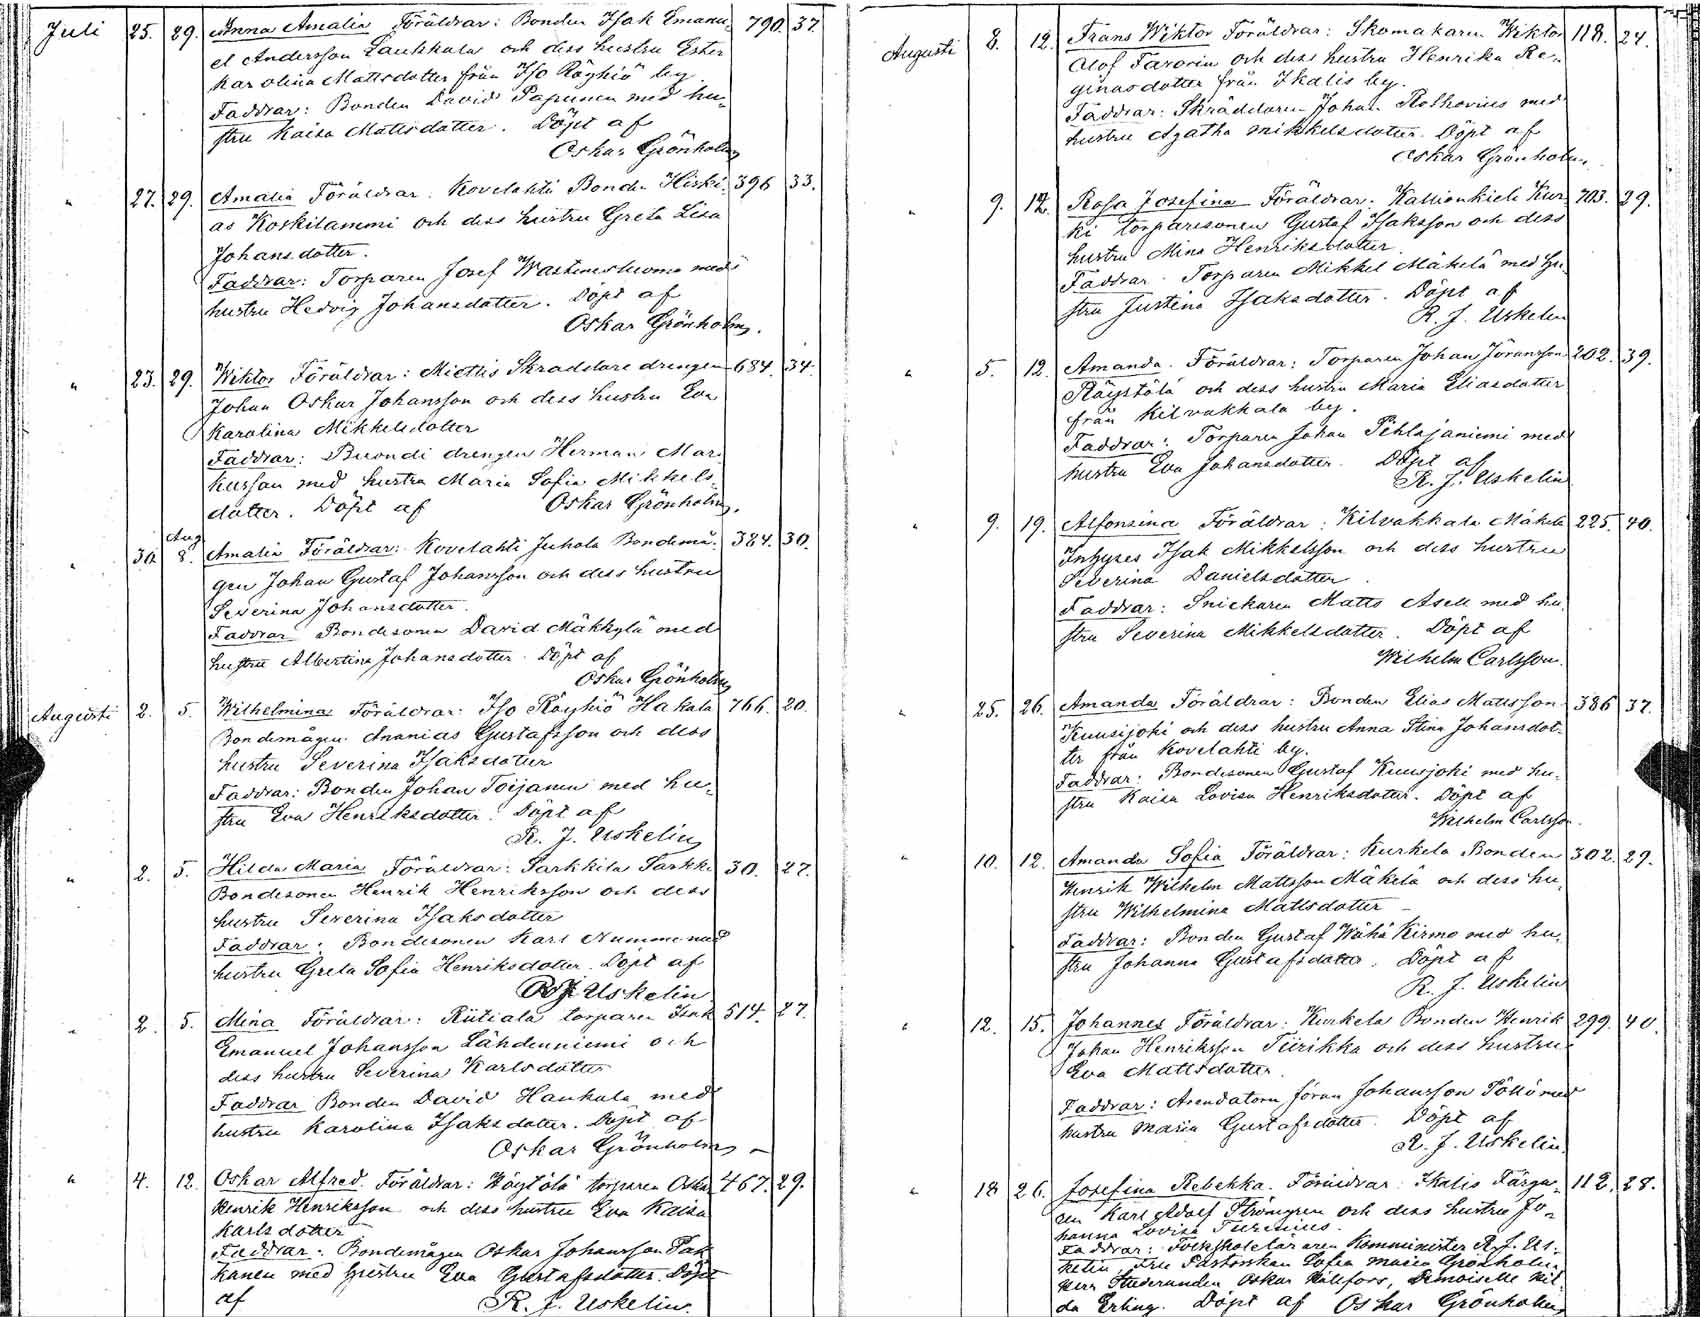 Juli 25. 29. Anna Amalia Föräldrar: Bonden Isak Emanu- 790. 37.
el Andersson Laukkala och dess hustru Ester
Karolina Mattsdotter från Iso Röyhiö by.
Faddrar: Bonden David Papunen med hu-
stru Kaisa Mattsdotter. Döpt af
Oskar Grönholm
" 27. 29. Amalia Föräldrar. Kovelahti Bonden Hiski- 396 33.
as Koskilammi och dess hustru Greta Lisa
Johansdotter.
Faddrar: Torparen Josef med
hustru Hedvig Johansdotter. Döpt af
Oskar Grönholm.
" 23. 29. Wiktor Föräldrar: Miettis Skraddare drengen 684. 34.
Johan Oskar Johansson och dess hustru Eva
Karolina Mikkelsdotter
Faddrar: drengen Herman Mar-
kusson med hustru Maria Sofia Mikkels-
dotter. Döpt af Oskar Grönholm.
" 30. Aug 8. Amalia Föräldrar: Kovelahti Juhola Bondemå- 384. 30.
gen Johan Gustaf Johansson och dess hustru
Severina Johansdotter.
Faddrar Bondesonen David Mäkkylä med
hustru Albertina Johansdotter. Döpt af
Oskar Grönholm
Augusti 2. 5. Wilhelmina Föräldrar: Iso Röyhiö Hakala 766. 20.
Bondemågen Ananias Gustafsson och dess
hustru Severina Isaksdotter
Faddrar: Bonden Johan Toijanen med hu-
stru Eva Henriksdotter. Döpt af
R. J. Uskelin
" 2. 5. Hilda Maria Föräldrar: Sarkkila Sarkka 30. 27.
Bondesonen Henrik Henriksson och dess
hustru Severina Isaksdotter
Faddrar: Bondesonen Karl Numme med
hustru Greta Sofia Henriksdotter. Döpt af
R J Uskelin
" 2. 5. Mina Föräldrar: Riitiala torparen Isak 514. 27.
Emanuel Johansson Lähdenniemi och
dess hustru Severina Karlsdotter
Faddrar Bonden David Haukala med
hustru Karolina Isaksdotter. Döpt af
Oskar Grönholm
" 4. 12. Oskar Alfred. Föräldrar: Röystölä torparen Oskar 467. 29.
Henrik Henriksson och dess hustru Eva Kaisa
Karlsdotter
Faddrar: Bondemågen Oskar Johansson Pak
kanen med hustru Eva Gustafsdotter. Döpt
af R. J. Uskelin.
Augusti 8. 12. Frans Wiktor Föräldrar: Skomakaren Wiktor 118. 24.
Olof Tavorin och dess hustru Henrika Re-
ginasdotter från Ikalis by.
Faddrar: Skräddaren Johan Roskovius med
hustru Agatha Mikkelsdotter. Döpt af
Oskar Grönholm.
" 9. 12. Rosa Josefina Föräldrar. Kallionkieli Kur- 703. 29.
ki torparesonen Gustaf Isaksson och dess
hustru Mina Henriksdotter.
Faddrar. Torparen Mikkel Mäkelä med hu-
stru Justina Isaksdotter. Döpt af
R. J. Uskelin
" 5. 12. Amanda. Föräldrar: Torparen Johan Jöransson 202. 39.
Röystölä och dess hustru Maria Eliasdotter
från Kilvakkala by.
Faddrar: Torparen Johan Pihlajaniemi med
hustru Eva Johansdotter. Döpt af
R. J. Uskelin
" 9. 19. Alfonsina Föräldrar: Kilvakkala Mäkelä 225. 40.
Inhyses Isak Mikkelsson och dess hustru
Severina Danielsdotter.
Faddrar: Snickaren Matts Asell med hu-
stru Severina Mikkelsdotter. Döpt af
Wilhelm Carlsson.
" 25. 26. Amanda Föräldrar: Bonden Elias Mattsson 386 37.
Kuusijoki och dess hustru Anna Stina Johansdot-
ter från Kovelahti by.
Faddrar: Bondesonen Gustaf Kuusjoki med hu-
stru Kaisa Lovisa Henriksdotter. Döpt af
Wilhelm Carlsson.
" 10. 12. Amanda Sofia Föräldrar: Kurkela Bonden 302. 29.
Henrik Wilhelm Mattsson Mäkelä och dess hu-
stru Wilhelmina Mattsdotter
Faddrar: Bonden Gustaf Wähä Kirmo med hu-
stru Johanna Gustafsdotter. Döpt af
R. J. Uskelin
" 12. 15. Johannes Föräldrar: Kurkela Bonden Henrik 299. 40.
Johan Henriksson Tiirikka och dess hustru
Eva Mattsdotter.
Faddrar: Arendatorn Jöran Johansson Töllö med
hustru Maria Gustafsdotter. Döpt af
R. J. Uskelin.
" 18 26. Josefina Rebekka. Föräldrar. Ikalis Färga- 112. 28.
ren Karl Adolf Strömgren och dess hustru Jo-
hanna Lovisa
Faddrar: Folkskoleläraren Kommi­nister R. J. Us-
kelin, Fru Pastorskan Sofia Maria Grönholm
Herr Studeranden Oskar Hällfors, Demoiselle Hil-
da Erling. Döpt af Oskar Grönholm